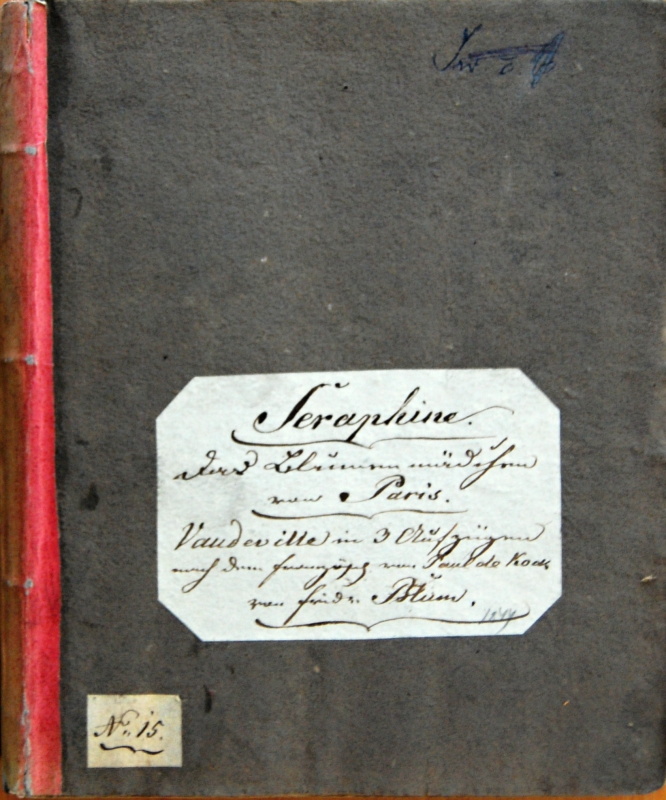 Seraphine.
Das Blumenmädchen
von Paris.
Vaudeville in 3 Aufzügen
nach dem französch von Paul de Kock
von Friedr. Blum.
1844
No. 15.